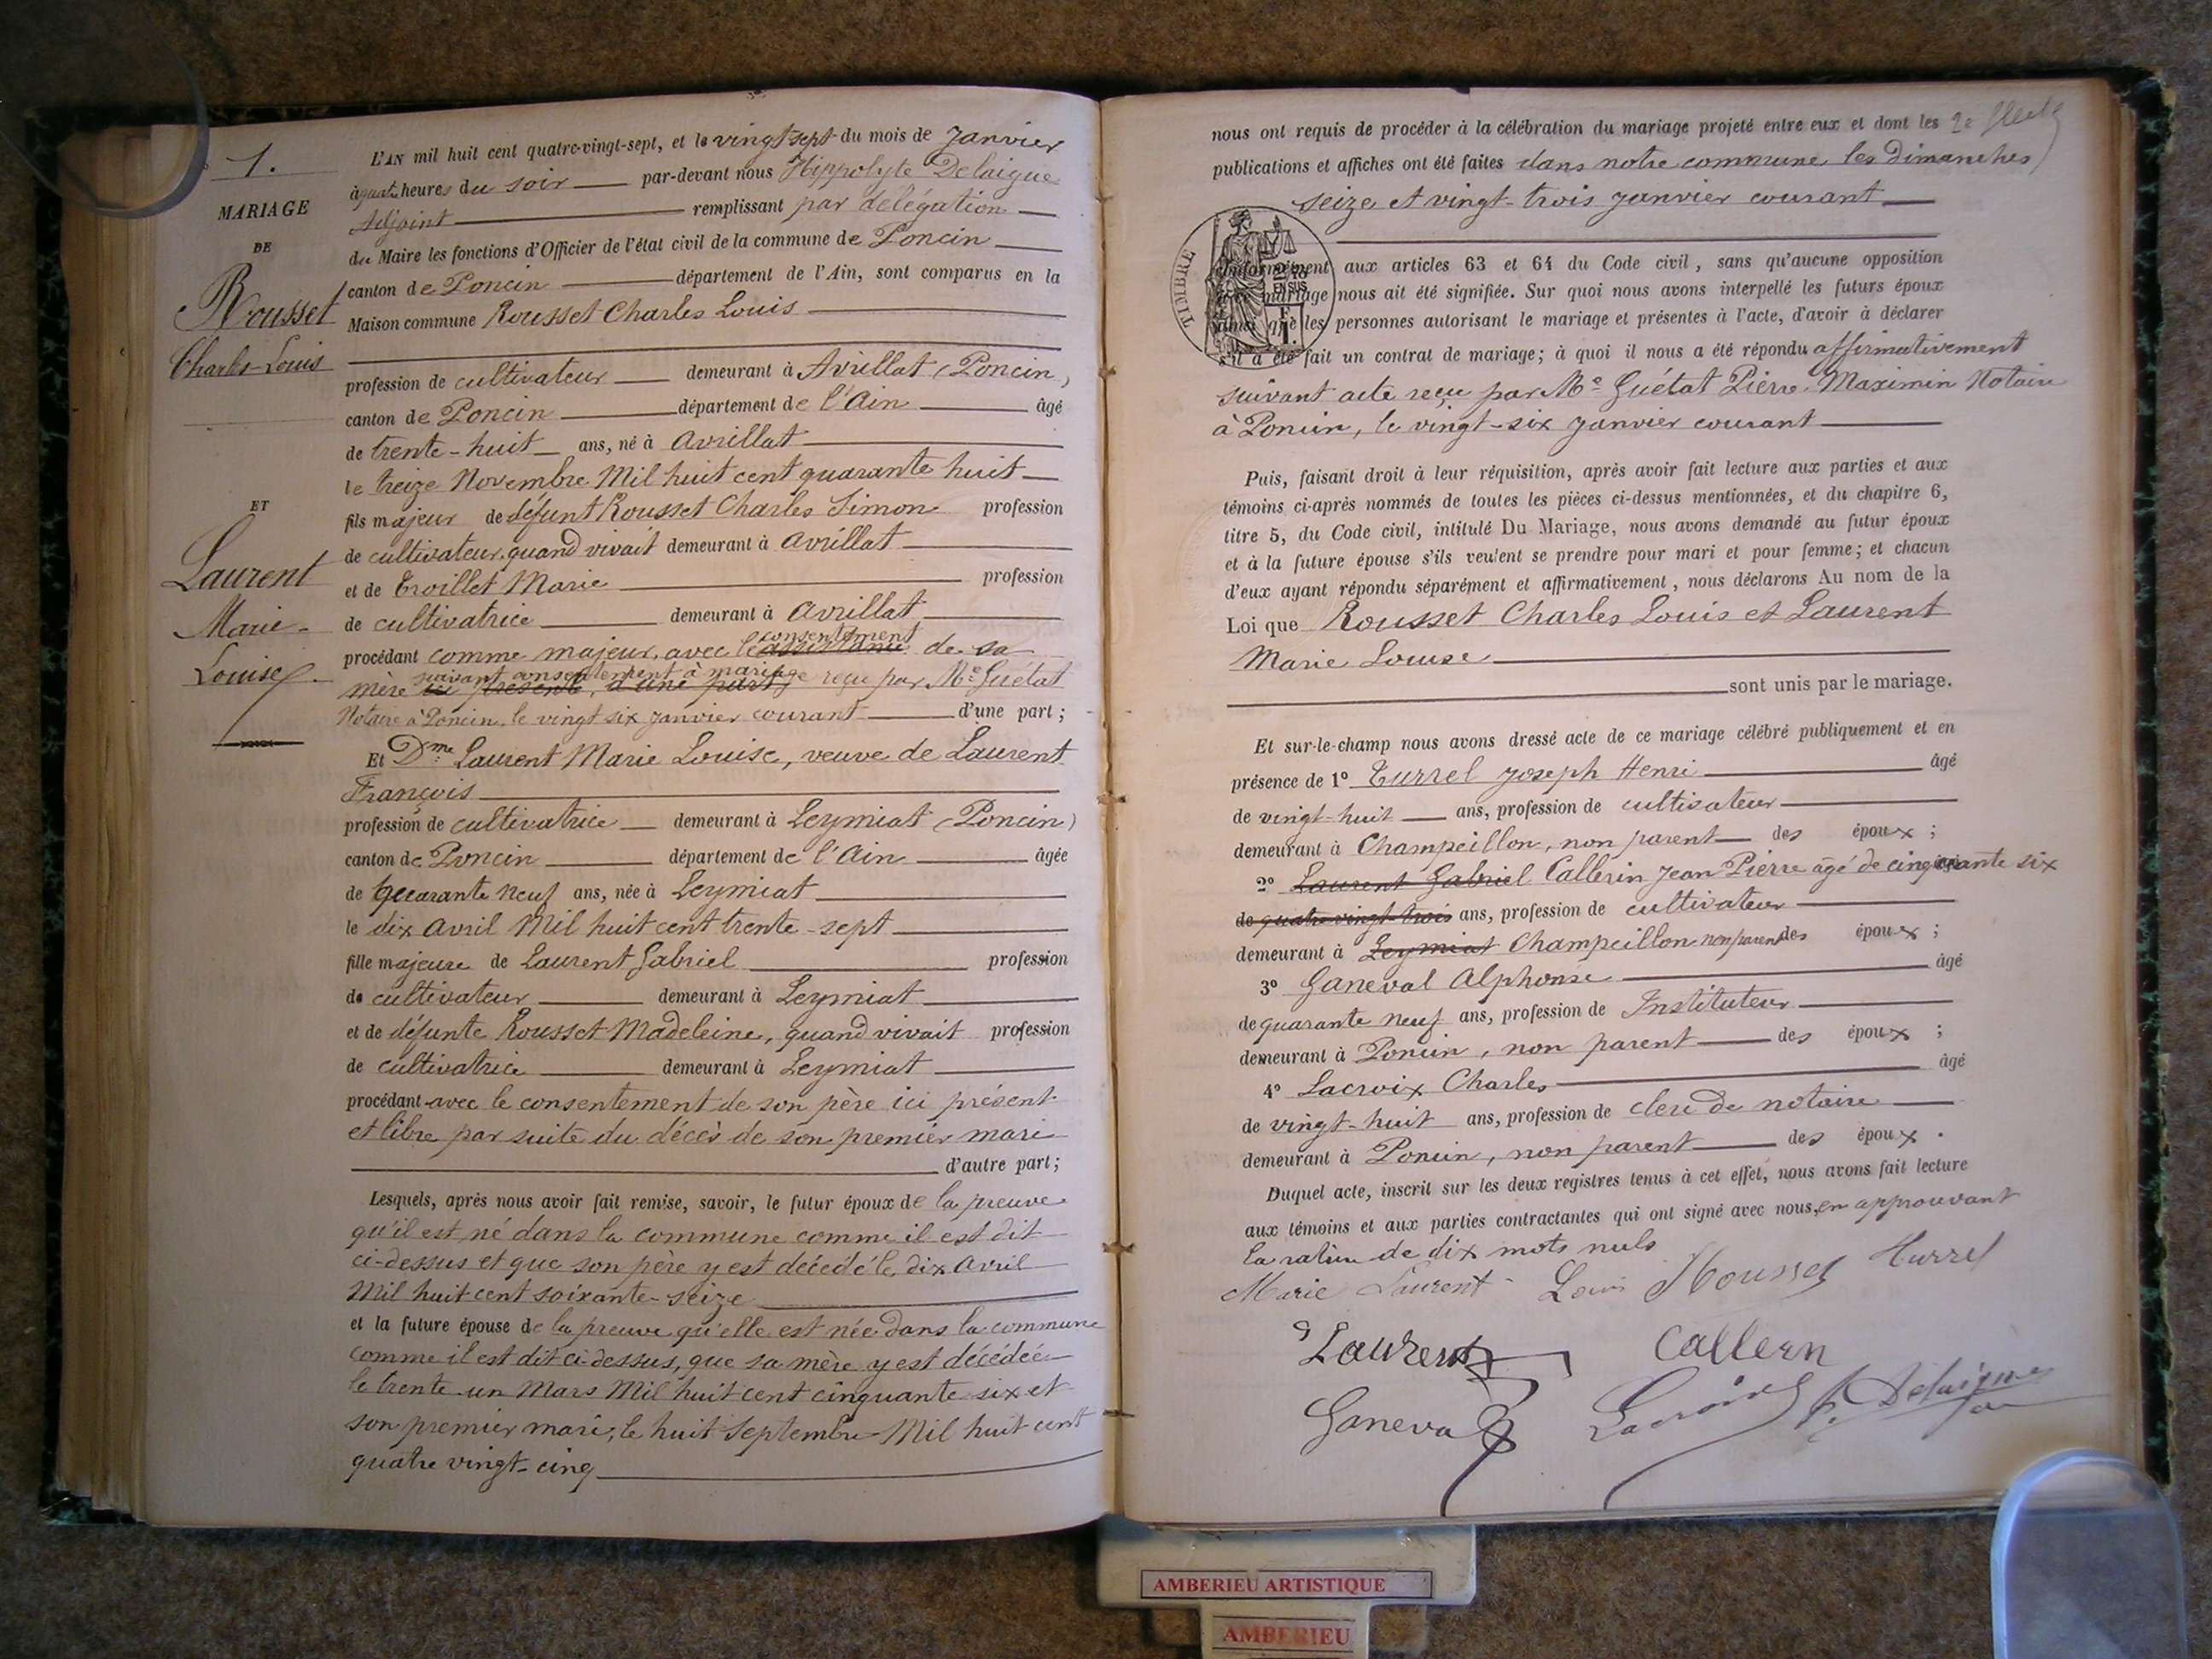 1.
MARIAGE
DE
Rousset
Charles-Louis
ET
Laurent
Marie-
Louise
L'AN mil huit cent quatre-vingt-sept, et le vingt sept du mois de Janvier
à quatre heures du soir par-devant nous Hippolyte Delaigue
Adjoint remplissant par délégation
du Maire les fonctions d'Officier de l'état civil de la commune de Poncin
canton de Poncin département de l'Ain, sont comparus en la
Maison commune Rousset Charles Louis
profession de cultivateur demeurant à Avrillat (Poncin,
canton de Poncin département de l'Ain âgé
de trente-huit ans, né à Avrillat
le treize Novembre Mil huit cent quarante huit
fils majeur de défunt Rousset Charles Simon profession
de cultivateur quand vivait demeurant à Avrillat
et de Troillet Marie profession
de cultivatrice demeurant à Avrillat
consentement
procédant comme majeur, avec le assistance de sa
suivant consentement à mariage
mère ici présente, d'une part, reçu par Me Guétat
Notaire à Poncin, le vingt six janvier courant d'une part;
Et Dme Laurent Marie Louise, veuve de Laurent
François
profession de cultivatrice demeurant à Leymiat (Poncin)
canton de Poncin département de l'Ain âgée
de quarante neuf ans, née à Leymiat
le dix Avril Mil huit cent trente-sept
fille majeure de Laurent Gabriel profession
de cultivateur demeurant à Leymiat
et de défunte Rousset Madeleine, quand vivait profession
de cultivatrice demeurant à Leymiat
procédant avec le consentement de son père ici présent
et libre par suite du décès de son premier mari
d'autre part;
Lesquels, après nous avoir fait remise, savoir, le futur époux de la preuve
qu'il est né dans la commune comme il est dit
ci-dessus et que son père y est décédé le dix Avril
Mil huit cent soixante-seize
et la future épouse de la preuve qu'elle est née dans la commune
comme il est dit ci-dessus, que sa mère y est décédée
le trente-un Mars Mil huit cent cinquante six et
son premier mari, le huit Septembre Mil huit cent
quatre vingt-cinq
nous ont requis de procéder à la célébration du mariage projeté entre eux et dont les
publications et affiches ont été faites dans notre commune les Dimanches
seize et vingt-trois janvier courant
TIMBRE
EN SUS
conformément aux articles 63 et 64 du Code civil, sans qu'aucune opposition
mariage nous ait été signifiée. Sur quoi nous avons interpellé les futurs époux
ainsi que les personnes autorisant le mariage et présentes à l'acte, d'avoir à déclarer
s'il a été fait un contrat de mariage; à quoi il nous a été répondu affirmativement
suivant acte reçu par Me Guétat Pierre Maximin Notaire
à Poncin, le vingt-six janvier courant
Puis, faisant droit à leur réquisition, après avoir fait lecture aux parties et aux
témoins ci-après nommés de toutes les pièces ci-dessus mentionnées, et du chapitre 6,
titre 5, du Code civil, intitulé Du Mariage, nous avons demandé au futur époux
et à la future épouse s'ils veulent se prendre pour mari et pour femme; et chacun
d'eux ayant répondu séparément et affirmativement, nous déclarons Au nom de la
Loi que Rousset Charles Louis et Laurent
Marie Louise
sont unis par le mariage.
Et sur-le-champ nous avons dressé acte de ce mariage célébré publiquement et en
présence de 1° Turrel Joseph Henri âgé
de vingt-huit ans, profession de cultivateur
demeurant à Champeillon, non parent des époux;
2° Laurent Gabriel Callerin Jean Pierre âgé de cinquante six
de quatre-vingt-trois ans, profession de cultivateur
demeurant à Leymiat Champeillon non parent des époux;
3° Ganeval Alphonse âgé
de quarante neuf ans, profession de Instituteur
demeurant à Poncin, non parent des époux;
4° Lacroix Charles âgé
de vingt-huit ans, profession de clerc de notaire
demeurant à Poncin, non parent des époux.
Duquel acte, inscrit sur les deux registres tenus à cet effet, nous avons fait lecture
aux témoins et aux parties contractantes qui ont signé avec nous, en approuvant
la rature de dix mots nuls
Marie Laurent Louis Rousset Turrel
Laurent Callern
Ganeval Lacroix Delaigue
AMBERIEU ARTISTIQUE
AMBERIEU